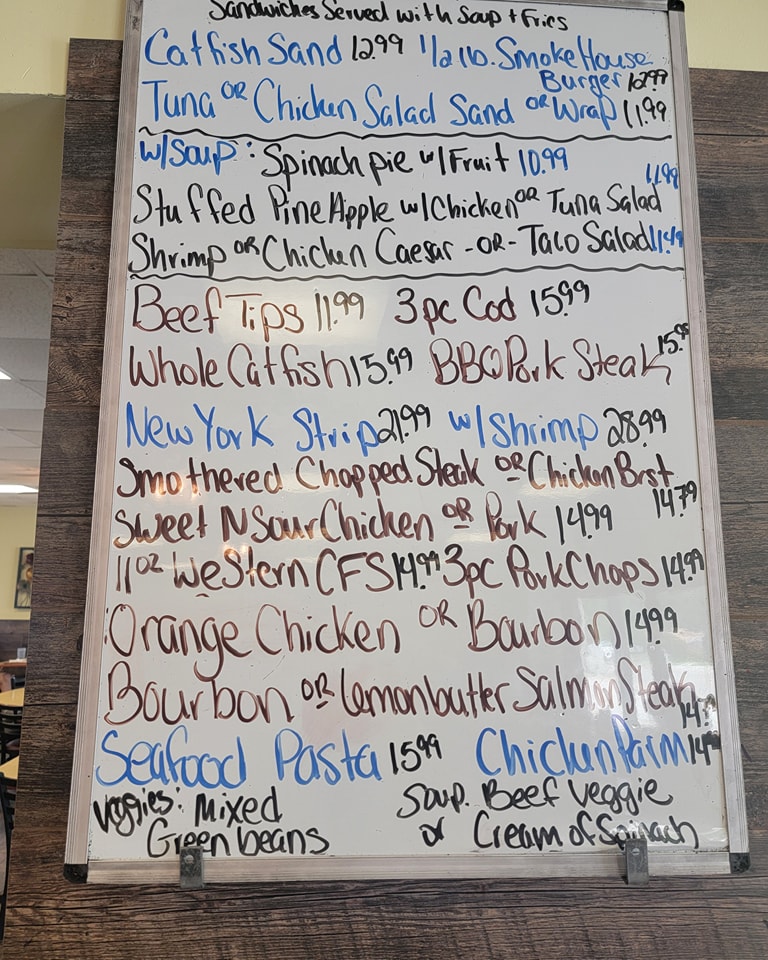 Sandwiches Served with Soup + Fries
Catfish Sand 12.99 1/2 lb. SmokeHouse
Burger 12.99
Tuna OR Chicken Salad Sand OR Wrap 11.99
w/Soup: Spinach pie w/Fruit 10.99
Stuffed PineApple w/Chicken OR Tuna Salad 11.99
Shrimp OR Chicken Caesar -OR- Taco Salad 11.49
Beef Tips 11.99 3pc Cod 15.99
Whole Catfish 15.99 BBQ Pork Steak 15.99
New York Strip 21.99 w/Shrimp 28.99
Smothered Chopped Steak OR Chicken Brst
14.79
Sweet N Sour Chicken OR Pork 14.99
11oz Western CFS 14.99 3pc Pork Chops 14.99
Orange Chicken OR Bourbon 14.99
Bourbon OR Lemonbutter Salmon Steak
Seafood Pasta 15.99 Chicken Parm
Veggies: Mixed
Green beans
Soup. Beef Veggie
or Cream of Spinach